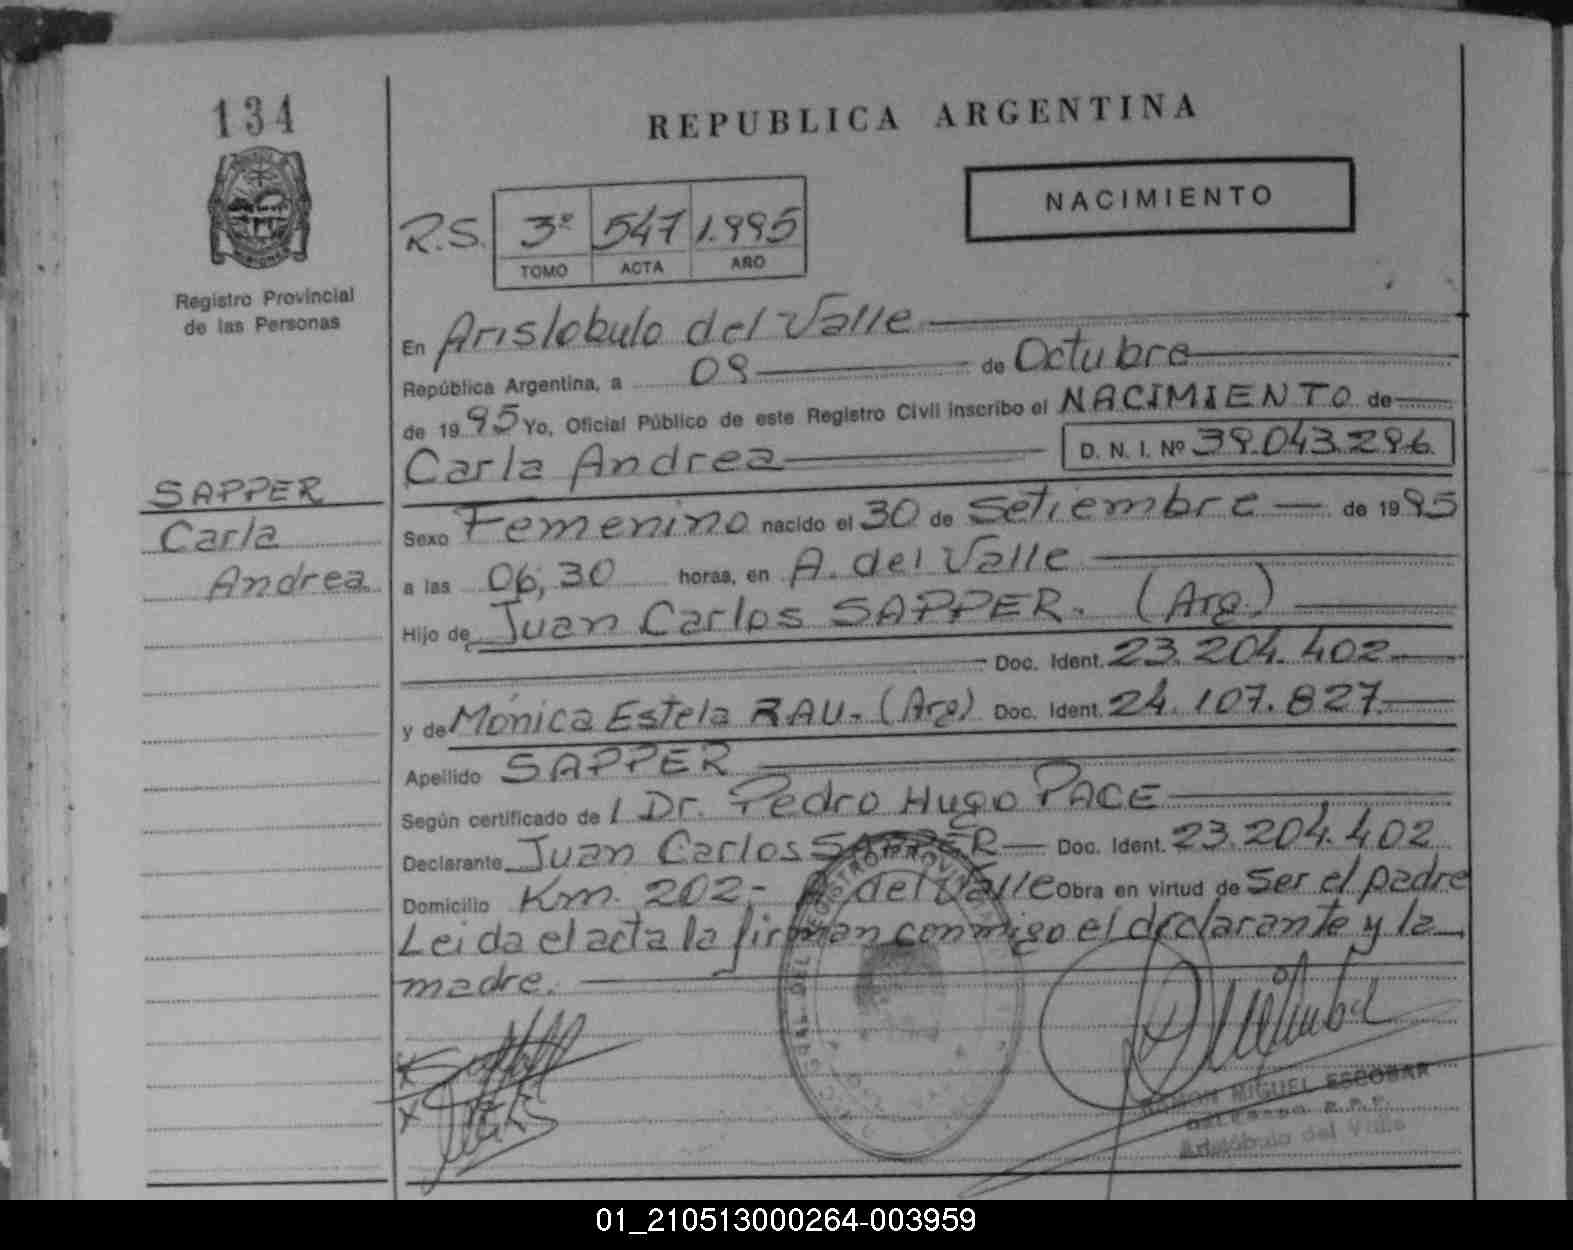 134
REPUBLICA ARGENTINA
NACIMIENTO
R.S. 3º 547 1.995
TOMO ACTA AÑO
Registro Provincial
de las Personas
En Aristobulo del Valle
República Argentina, a 09 de Octubre
de 1995 Yo, Oficial Público de este Registro Civil inscribo el NACIMIENTO de
Carla Andrea D. N. I. Nº 39.043.296.
SAPPER
Carla
Andrea
Sexo Femenino nacido el 30 de Setiembre de 1995
a las 06,30 horas, en A. del Valle
Hijo de Juan Carlos SAPPER. (Arg.)
Doc. Ident. 23.204.402
y de Mónica Estela RAU. (Arg) Doc. Ident. 24.107.827
Apellido SAPPER
Según certificado de l Dr. Pedro Hugo PACE
Declarante Juan Carlos SAPPER Doc. Ident. 23.204.402
Domicilio Km. 202- A del Valle Obra en virtud de ser el padre
Leida el acta la firman conmigo el declarante y la
madre.
RAMON MIGUEL ESCOBAR
Aristóbulo del Valle
01_210513000264-003959